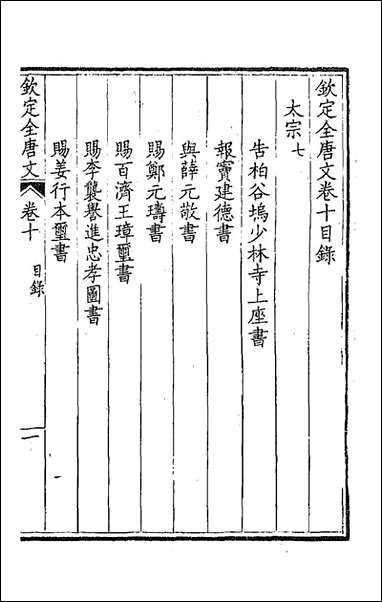 欽定全唐文卷十目錄
太宗七
告柏谷塢少林寺上座書
報竇建德書
與薛元敬書
賜鄭元璹書
賜百濟王璋璽書
賜李襲譽進忠孝圖書
賜姜行本璽書
欽定全唐文 卷十 目錄 一